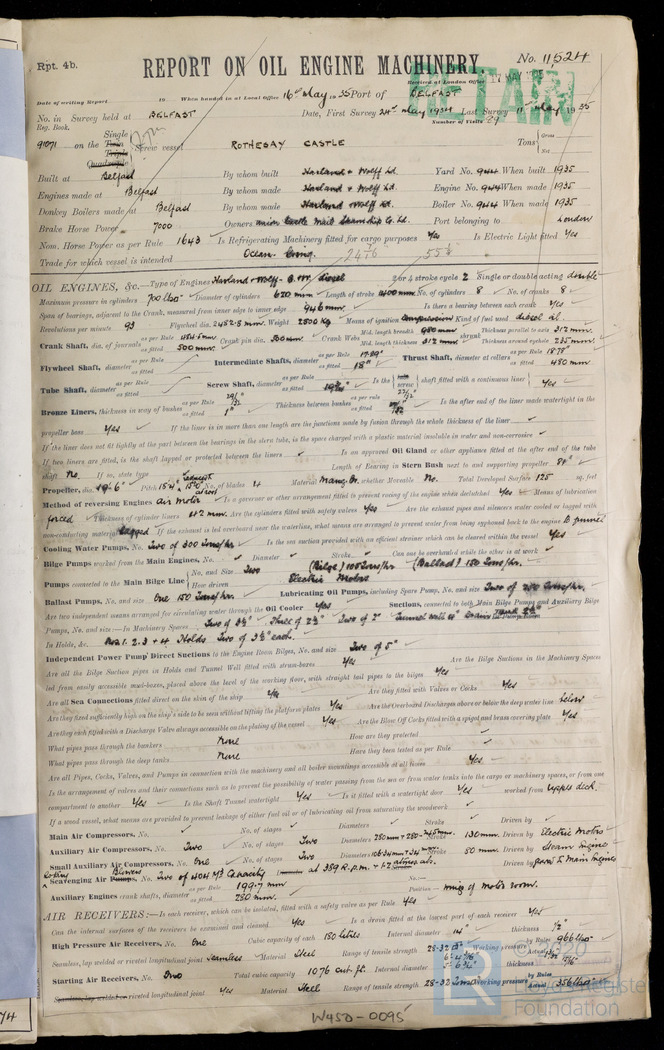 Rpt. 4b.
REPORT ON OIL ENGINE MACHINERY.
No. 11,524
Received at London Office 17 MAY 1935
RETAIN
Date of writing Report 19 When handed in at Local Office 16th May 1935 Port of BELFAST
No. in Reg. Book. Survey held at BELFAST Date, First Survey 24th May 1934 Last Survey May 1935
Number of Visits 29
91071 on the Single Twin Triple Quadruple Screw vessel ROTHESAY CASTLE Tons Gross Net
Built at Belfast By whom built Harland & Wolff Ld. Yard No. 944 When built 1935
Engines made at Belfast By whom made Harland & Wolff Ld. Engine No. 944 When made 1935
Donkey Boilers made at Belfast By whom made Harland & Wolff Ld. Boiler No. 944 When made 1935
Brake Horse Power 7000 Owners Union Castle Mail Steamship Co. Ld. Port belonging to London
Nom. Horse Power as per Rule 1643 Is Refrigerating Machinery fitted for cargo purposes Yes Is Electric Light fitted Yes
Trade for which vessel is intended Ocean going.
OIL ENGINES, &c.—Type of Engines Harland-Wolff- B.W. diesel 2 or 4 stroke cycle 2 Single or double acting double
Maximum pressure in cylinders 700 lbs Diameter of cylinders 620 mm Length of stroke 1400 mm No. of cylinders 8 No. of cranks 8
Span of bearings, adjacent to the Crank, measured from inner edge to inner edge 946 mm Is there a bearing between each crank Yes
Revolutions per minute 93 Flywheel dia. 2452.5 mm Weight 2500 Kg Means of ignition Compression Kind of fuel used diesel oil.
Crank Shaft, dia. of journals as per Rule as fitted 500 mm. Crank pin dia. 500 mm Crank Webs Mid. length breadth 980 mm Mid. length thickness 312 mm shrunk Thickness parallel to axis 312 mm Thickness around eyehole 235 mm
Flywheel Shaft, diameter as per Rule as fitted Intermediate Shafts, diameter as per Rule 17.29" as fitted 18" Thrust Shaft, diameter at collars as per Rule 18.78" as fitted 480 mm
Tube Shaft, diameter as per Rule as fitted Screw Shaft, diameter as per Rule as fitted Is the tube screw shaft fitted with a continuous liner Yes
Bronze Liners, thickness in way of bushes as per Rule as fitted 1" Thickness between bushes as per rule as fitted Is the after end of the liner made watertight in the
propeller boss Yes If the liner is in more than one length are the junctions made by fusion through the whole thickness of the liner
If the liner does not fit tightly at the part between the bearings in the stern tube, is the space charged with a plastic material insoluble in water and non-corrosive
If two liners are fitted, is the shaft lapped or protected between the liners Is an approved Oil Gland or other appliance fitted at the after end of the tube
shaft No. If so, state type Length of Bearing in Stern Bush next to and supporting propeller 84"
Propeller, dia. 19'6" Pitch No. of blades 4 Material Mang. Br. whether Moveable No. Total Developed Surface 125 sq. feet
Method of reversing Engines air motor Is a governor or other arrangement fitted to prevent racing of the engine when declutched Yes Means of lubrication
forced Thickness of cylinder liners 42 mm Are the cylinders fitted with safety valves Yes Are the exhaust pipes and silencers water cooled or lagged with
non-conducting material lagged If the exhaust is led overboard near the waterline, what means are arranged to prevent water from being syphoned back to the engine to funnel
Cooling Water Pumps, No. Two of 300 Tons/hr Is the sea suction provided with an efficient strainer which can be cleared within the vessel Yes
Bilge Pumps worked from the Main Engines, No. Diameter Stroke Can one be overhauled while the other is at work
Pumps connected to the Main Bilge Line No. and Size Two (Bilge) 105 Tons/hr. (Ballast) 150 Tons/hr.
How driven Electric Motors
Ballast Pumps, No. and size One 150 Tons/hr. Lubricating Oil Pumps, including Spare Pump, No. and size Two of 200 Tons/hr.
Are two independent means arranged for circulating water through the Oil Cooler Yes Suctions, connected to both Main Bilge Pumps and Auxiliary Bilge
Pumps, No. and size:—In Machinery Spaces Two of 3½" Three of 2½" Two of 2"
In Holds, &c. Nos 1. 2. 3 & 4 Holds Two of 3½" each.
Independent Power Pump Direct Suctions to the Engine Room Bilges, No. and size Two of 5"
Are all the Bilge Suction pipes in Holds and Tunnel Well fitted with strum-boxes Yes Are the Bilge Suctions in the Machinery Spaces
led from easily accessible mud-boxes, placed above the level of the working floor, with straight tail pipes to the bilges Yes
Are all Sea Connections fitted direct on the skin of the ship Yes Are they fitted with Valves or Cocks Yes
Are they fixed sufficiently high on the ship's side to be seen without lifting the platform plates Yes Are the Overboard Discharges above or below the deep water line below
Are they each fitted with a Discharge Valve always accessible on the plating of the vessel Yes Are the Blow Off Cocks fitted with a spigot and brass covering plate Yes
What pipes pass through the bunkers None How are they protected
What pipes pass through the deep tanks None Have they been tested as per Rule
Are all Pipes, Cocks, Valves, and Pumps in connection with the machinery and all boiler mountings accessible at all times Yes
Is the arrangement of valves and their connections such as to prevent the possibility of water passing from the sea or from water tanks into the cargo or machinery spaces, or from one
compartment to another Yes Is the Shaft Tunnel watertight Yes Is it fitted with a watertight door Yes worked from upper deck.
If a wood vessel, what means are provided to prevent leakage of either fuel oil or of lubricating oil from saturating the woodwork
Main Air Compressors, No. No. of stages Diameters Stroke Driven by
Auxiliary Air Compressors, No. Two No. of stages Two Diameters Stroke 130 mm. Driven by Electric Motors
Small Auxiliary Air Compressors, No. One No. of stages Two Diameters Stroke 80 mm. Driven by Steam Engine
Rotary Blowers
Scavenging Air Pumps, No. Two of 404 M³ Capacity at 389 R.p.m. Driven by from Main Engines
Auxiliary Engines crank shafts, diameter as per Rule 199.7 mm as fitted 280 mm. No. Position wings of motor room.
AIR RECEIVERS:—Is each receiver, which can be isolated, fitted with a safety valve as per Rule Yes
Can the internal surfaces of the receivers be examined and cleaned Yes Is a drain fitted at the lowest part of each receiver Yes
High Pressure Air Receivers, No. One Cubic capacity of each 150 litres Internal diameter 14" thickness ½"
Seamless, lap welded or riveted longitudinal joint Seamless Material Steel Range of tensile strength Working pressure by Rules 966 lbs Actual
Starting Air Receivers, No. Two Total cubic capacity 1076 cub. ft. Internal diameter thickness
Seamless, lap welded or riveted longitudinal joint Yes Material Steel Range of tensile strength 28-32 Tons Working pressure by Rules Actual 356 lbs
© 2020
LR
Lloyd's Register
Foundation
W450-0095